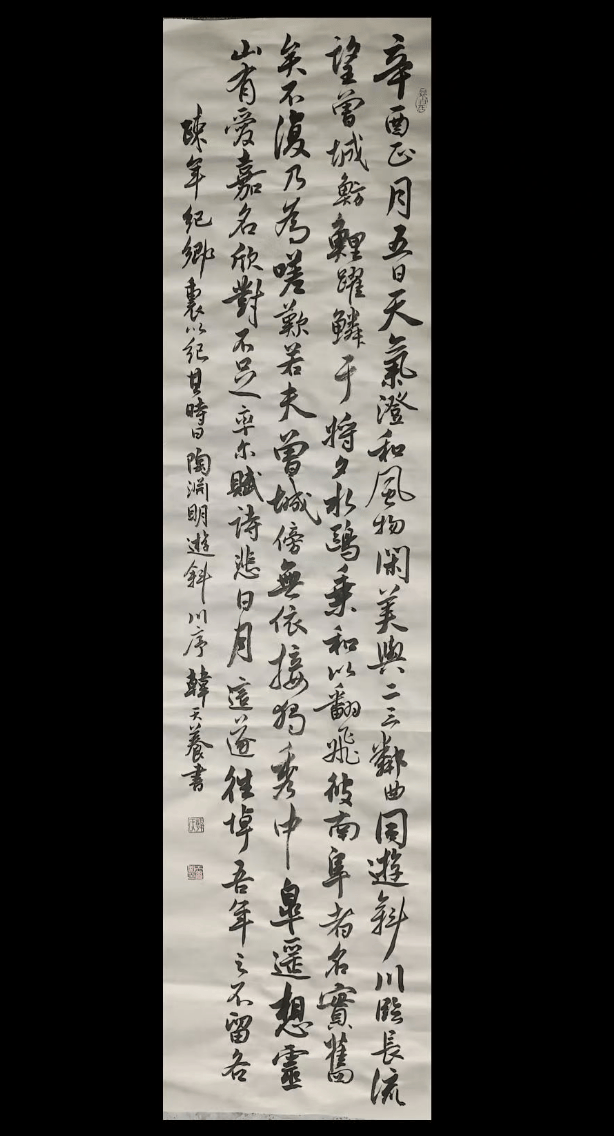 辛酉正月五日天氣澄和風物閑美與二三鄰曲同遊斜川臨長流
望曾城魴鯉躍鱗于將夕水鷗乘和以翻飛彼南阜者名實舊
矣不復乃為嗟歎若夫曾城傍無依接獨秀中皐遥想靈
山有愛嘉名欣對不足率尔賦詩悲日月這遂往悼吾年之不留各
疎年紀鄉裏以紀其時日陶渊明遊斜川序韓天養書